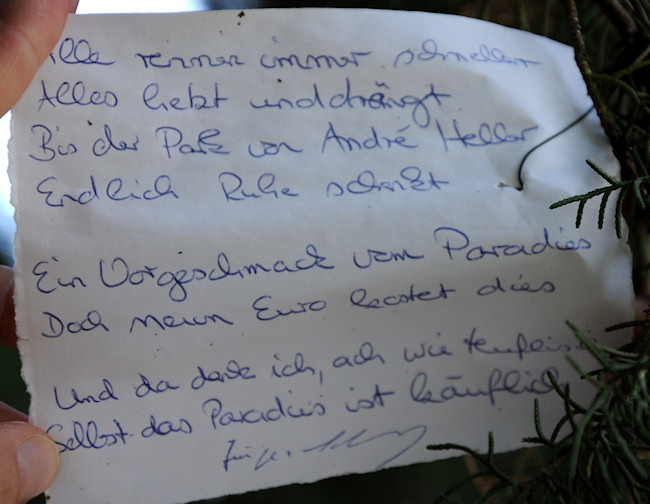 Alle rennen immer schneller
Alles hetzt und drängt
Bis der Park von André Heller
Endlich Ruhe schenkt
Ein Vorgeschmack vom Paradies
Doch neun Euro kostet dies
Und da denk ich, ach wie
Selbst das Paradies ist käuflich